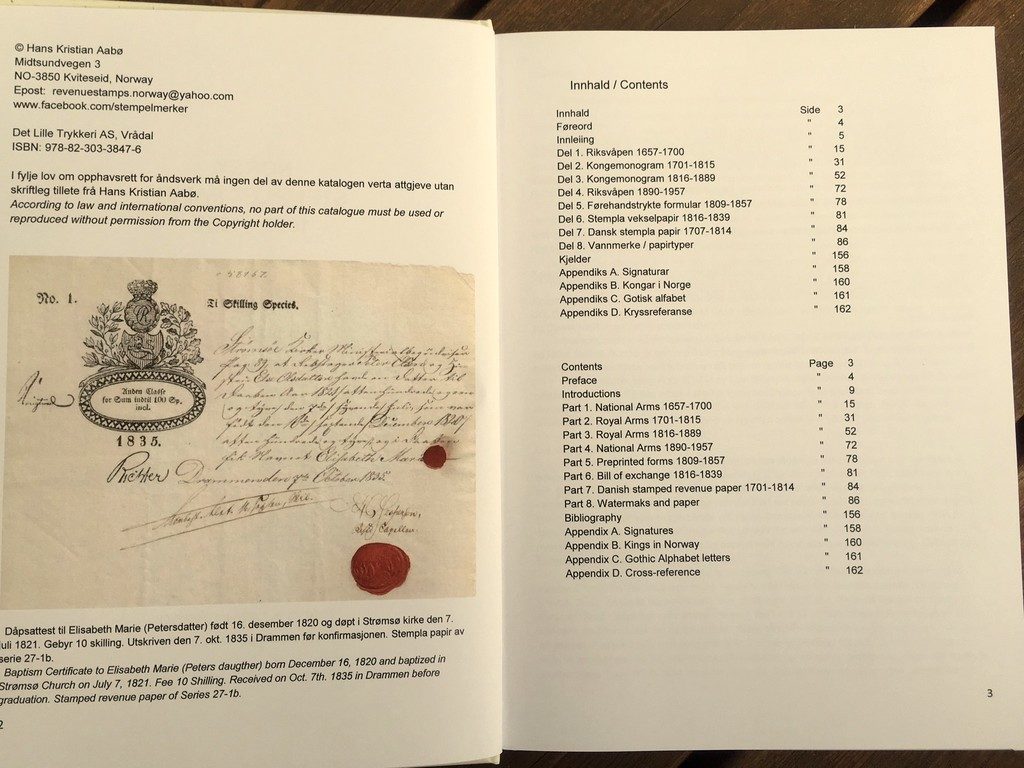 © Hans Kristian Aabø
Midtsundvegen 3
NO-3850 Kviteseid, Norway
Epost: revenuestamps.norway@yahoo.com
www.facebook.com/stempelmerker
Det Lille Trykkeri AS, Vrådal
ISBN: 978-82-303-3847-6
I fylje lov om opphavsrett for åndsverk må ingen del av denne katalogen verta attgjeve utan
skriftleg tillete frå Hans Kristian Aabø.
According to law and international conventions, no part of this catalogue must be used or
reproduced without permission from the Copyright holder.
No. 1.
Ti Skilling Species.
Anden Classe
for Sum indtil 100 Sp.
incl.
1835.
Dåpsattest til Elisabeth Marie (Petersdatter) født 16. desember 1820 og døpt i Strømsø kirke den 7.
juli 1821. Gebyr 10 skilling. Utskriven den 7. okt. 1835 i Drammen før konfirmasjonen. Stempla papir av
serie 27-1b.
Baptism Certificate to Elisabeth Marie (Peters daugther) born December 16, 1820 and baptized in
Strømsø Church on July 7, 1821. Fee 10 Shilling. Received on Oct. 7th. 1835 in Drammen before
graduation. Stamped revenue paper of Series 27-1b.
2
Innhald / Contents
Innhald Side 3
Føreord " 4
Innleiing " 5
Del 1. Riksvåpen 1657-1700 " 15
Del 2. Kongemonogram 1701-1815 " 31
Del 3. Kongemonogram 1816-1889 " 52
Del 4. Riksvåpen 1890-1957 " 72
Del 5. Førehandstrykte formular 1809-1857 " 78
Del 6. Stempla vekselpapir 1816-1839 " 81
Del 7. Dansk stempla papir 1707-1814 " 84
Del 8. Vannmerke / papirtyper " 86
Kjelder " 156
Appendiks A. Signaturar " 158
Appendiks B. Kongar i Norge " 160
Appendiks C. Gotisk alfabet " 161
Appendiks D. Kryssreferanse " 162
Contents Page 3
Preface " 4
Introductions " 9
Part 1. National Arms 1657-1700 " 15
Part 2. Royal Arms 1701-1815 " 31
Part 3. Royal Arms 1816-1889 " 52
Part 4. National Arms 1890-1957 " 72
Part 5. Preprinted forms 1809-1857 " 78
Part 6. Bill of exchange 1816-1839 " 81
Part 7. Danish stamped revenue paper 1701-1814 " 84
Part 8. Watermaks and paper " 86
Bibliography " 156
Appendix A. Signatures " 158
Appendix B. Kings in Norway " 160
Appendix C. Gothic Alphabet letters " 161
Appendix D. Cross-reference " 162
3